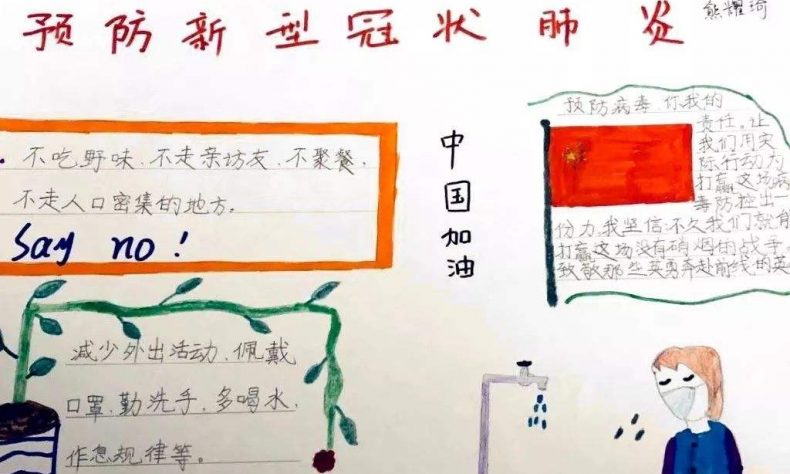 预防新型冠状肺炎
熊耀琦
不吃野味、不走亲坊友、不聚餐、
不走人口密集的地方。
Say no!
中国加油
预防病毒,你我的
责任。让
我们用实
际行动为
打赢这场病
毒防控出一
份力。我坚信不久我们就
打赢这场没有硝烟的战争。
致敬那些英勇奔赴前线的英
减少外出活动、佩戴
口罩、勤洗手、多喝水、
作息规律等。